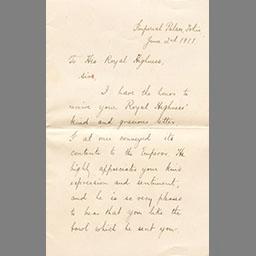 Imperial Palace, Tokio
June 2nd 1911.
To His Royal Highness,
Sire,
I have the honor to
receive your Royal Highness'
kind and gracious letter.
I at once conveyed its
contents to the Emperor. He
highly appreciates your kind
expression and sentiment,
and he is so very pleased
to hear that you like the
bowl which he sent you.